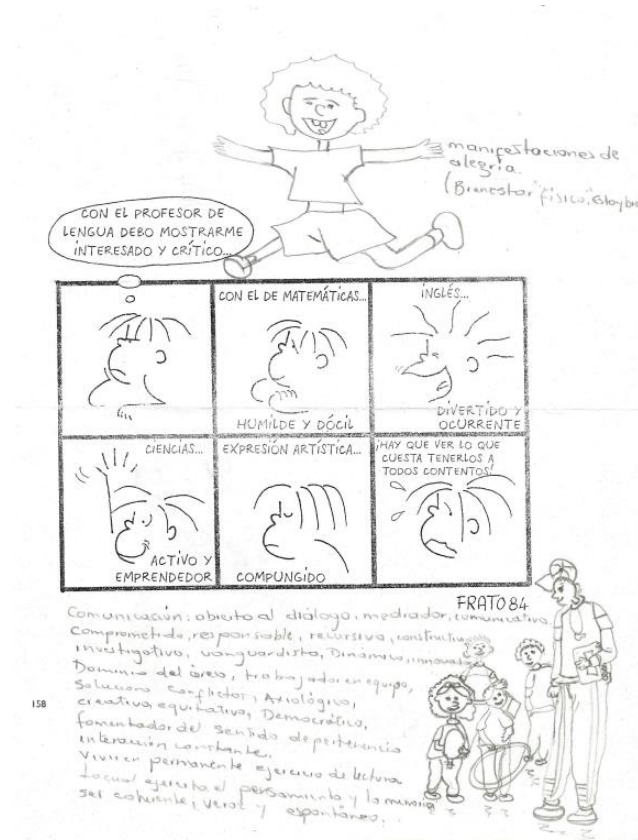 manifestaciones de
alegría.
(Bienestar "físico", Estoy bien
CON EL PROFESOR DE
LENGUA DEBO MOSTRARME
INTERESADO Y CRÍTICO...
CON EL DE MATEMÁTICAS...
HUMILDE Y DÓCIL
INGLÉS...
DIVERTIDO Y
OCURRENTE
CIENCIAS...
ACTIVO Y
EMPRENDEDOR
EXPRESIÓN ARTÍSTICA...
COMPUNGIDO
¡HAY QUE VER LO QUE
CUESTA TENERLOS A
TODOS CONTENTOS!
FRATO 84
Comunicación: abierto al diálogo, mediador, comunicativo,
Comprometido, responsable, recursivo, constructivo
investigativo, vanguardista, Dinámico, innovador
Dominio del área, trabajador en equipo,
Soluciona conflictos, Axiológico,
creativo, equitativo, Democrático,
fomentador del sentido de pertenencia
interacción constante.
Vivir en permanente ejercicio de lectura
Lo cual ejercita el pensamiento y la memoria
ser coherente, veraz y espontáneo.
158